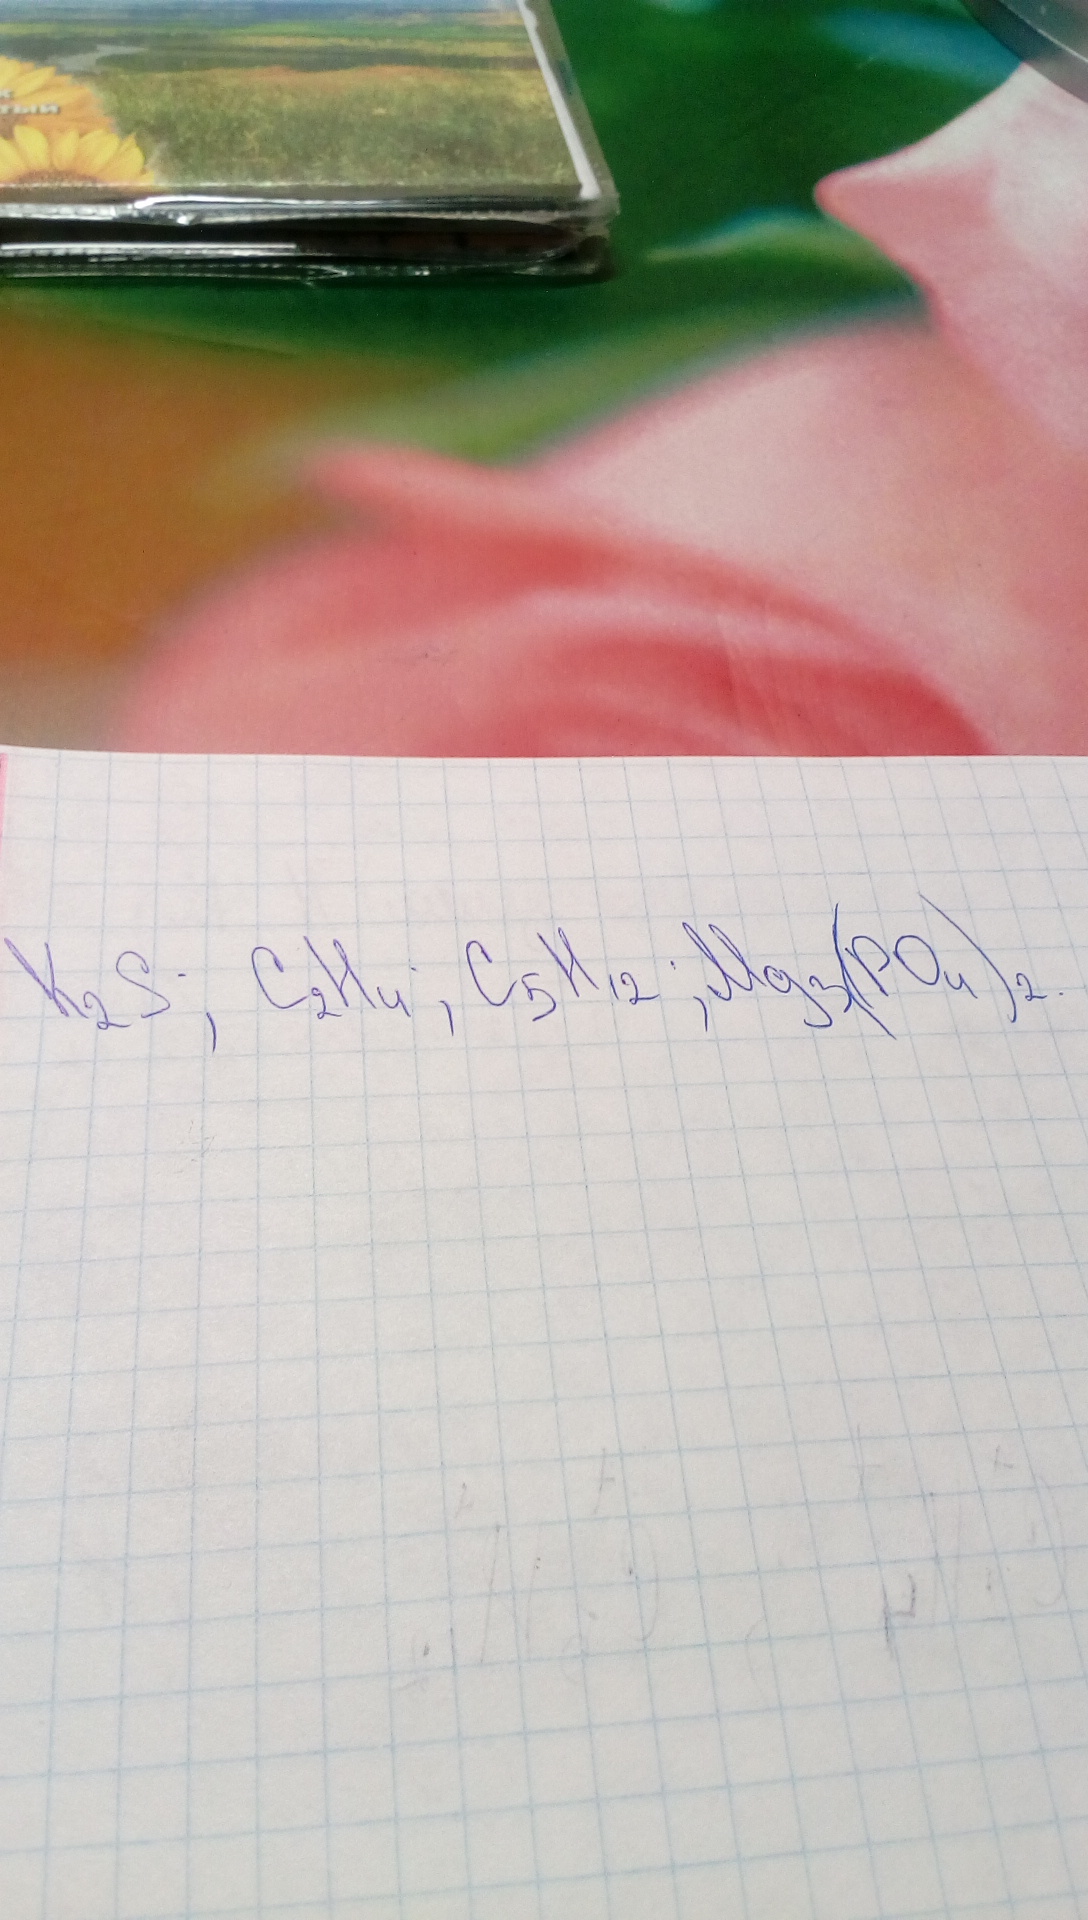 K₂S; C₂H₄; C₅H₁₂; Mg₃(PO₄)₂.